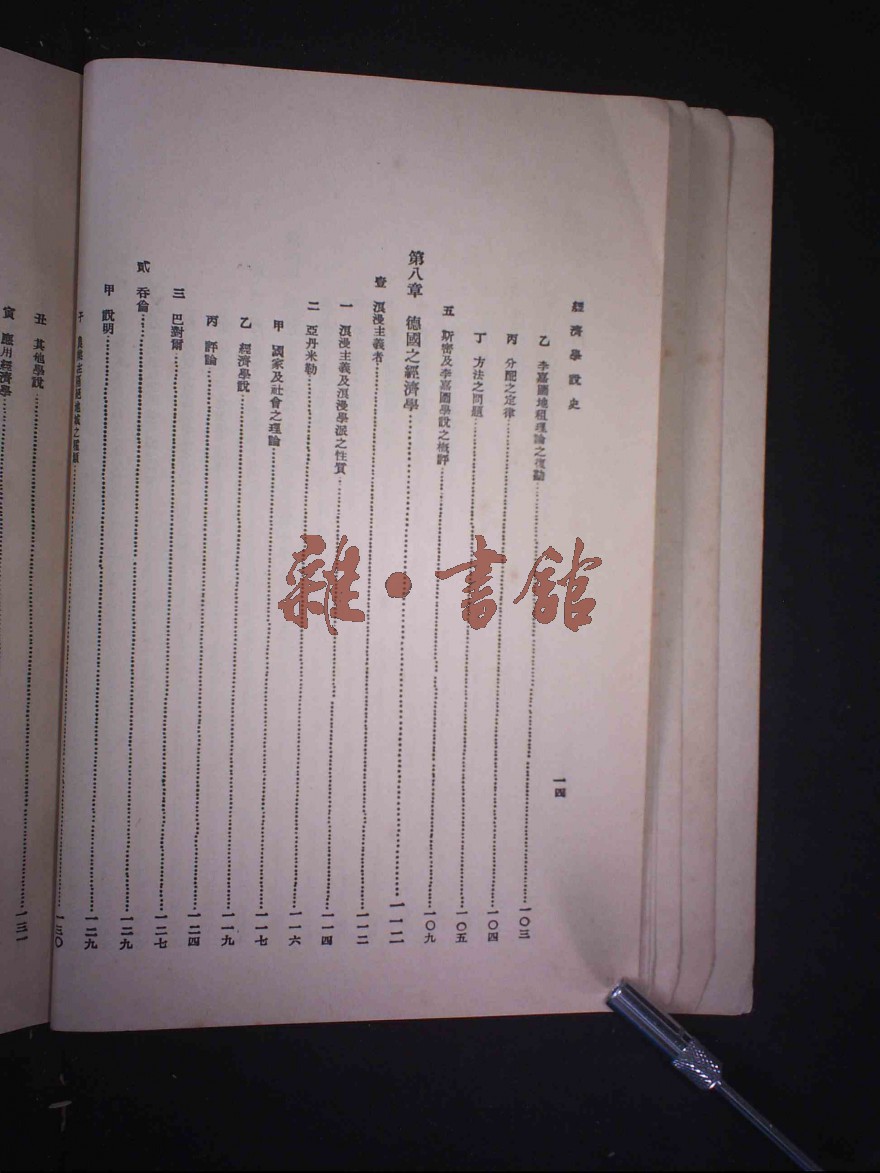 經濟學說史
一四
乙 李嘉圖地租理論之復論 一〇三
丙 分配之定律 一〇四
丁 方法之問題 一〇五
五 斯密及李嘉圖學說之概評 一〇九
第八章 德國之經濟學 一一二
壹 浪漫主義者 一一二
一 浪漫主義及浪漫學派之性質 一一四
二 亞丹米勒 一一六
甲 國家及社會之理論 一一七
乙 經濟學說 一一九
丙 評論 一二四
三 巴對爾 一二七
貳 吞倫 一二九
甲 說明 一二九
子 之 一三〇
丑 其他學說
寅 應用經濟學 一三一
雜·書館